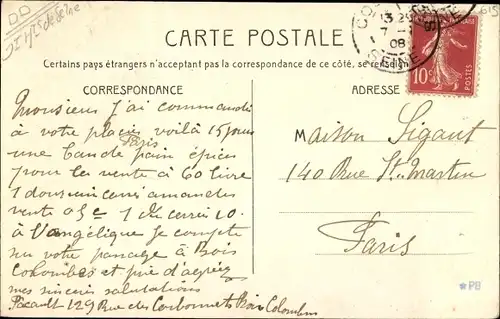 CARTE POSTALE
Certains pays étrangers n'acceptent pas la correspondance de ce côté, se
CORRESPONDANCE
ADRESSE
Monsieur j'ai commandé
à votre placier voilà 15 jours
Paris
une bande pain épices
pour la vente à 60 livre
1 douz
amandes
vente 05c 1
10
à l'angélique je compte
sur votre passage à Bois
Colombes et prie d'agréez
mes sincères salutations
129 Rue des Bois Colombes
Maison Sigaut
140 Rue St. Martin
Paris
10c
POSTES
SEINE
7
08
*PB